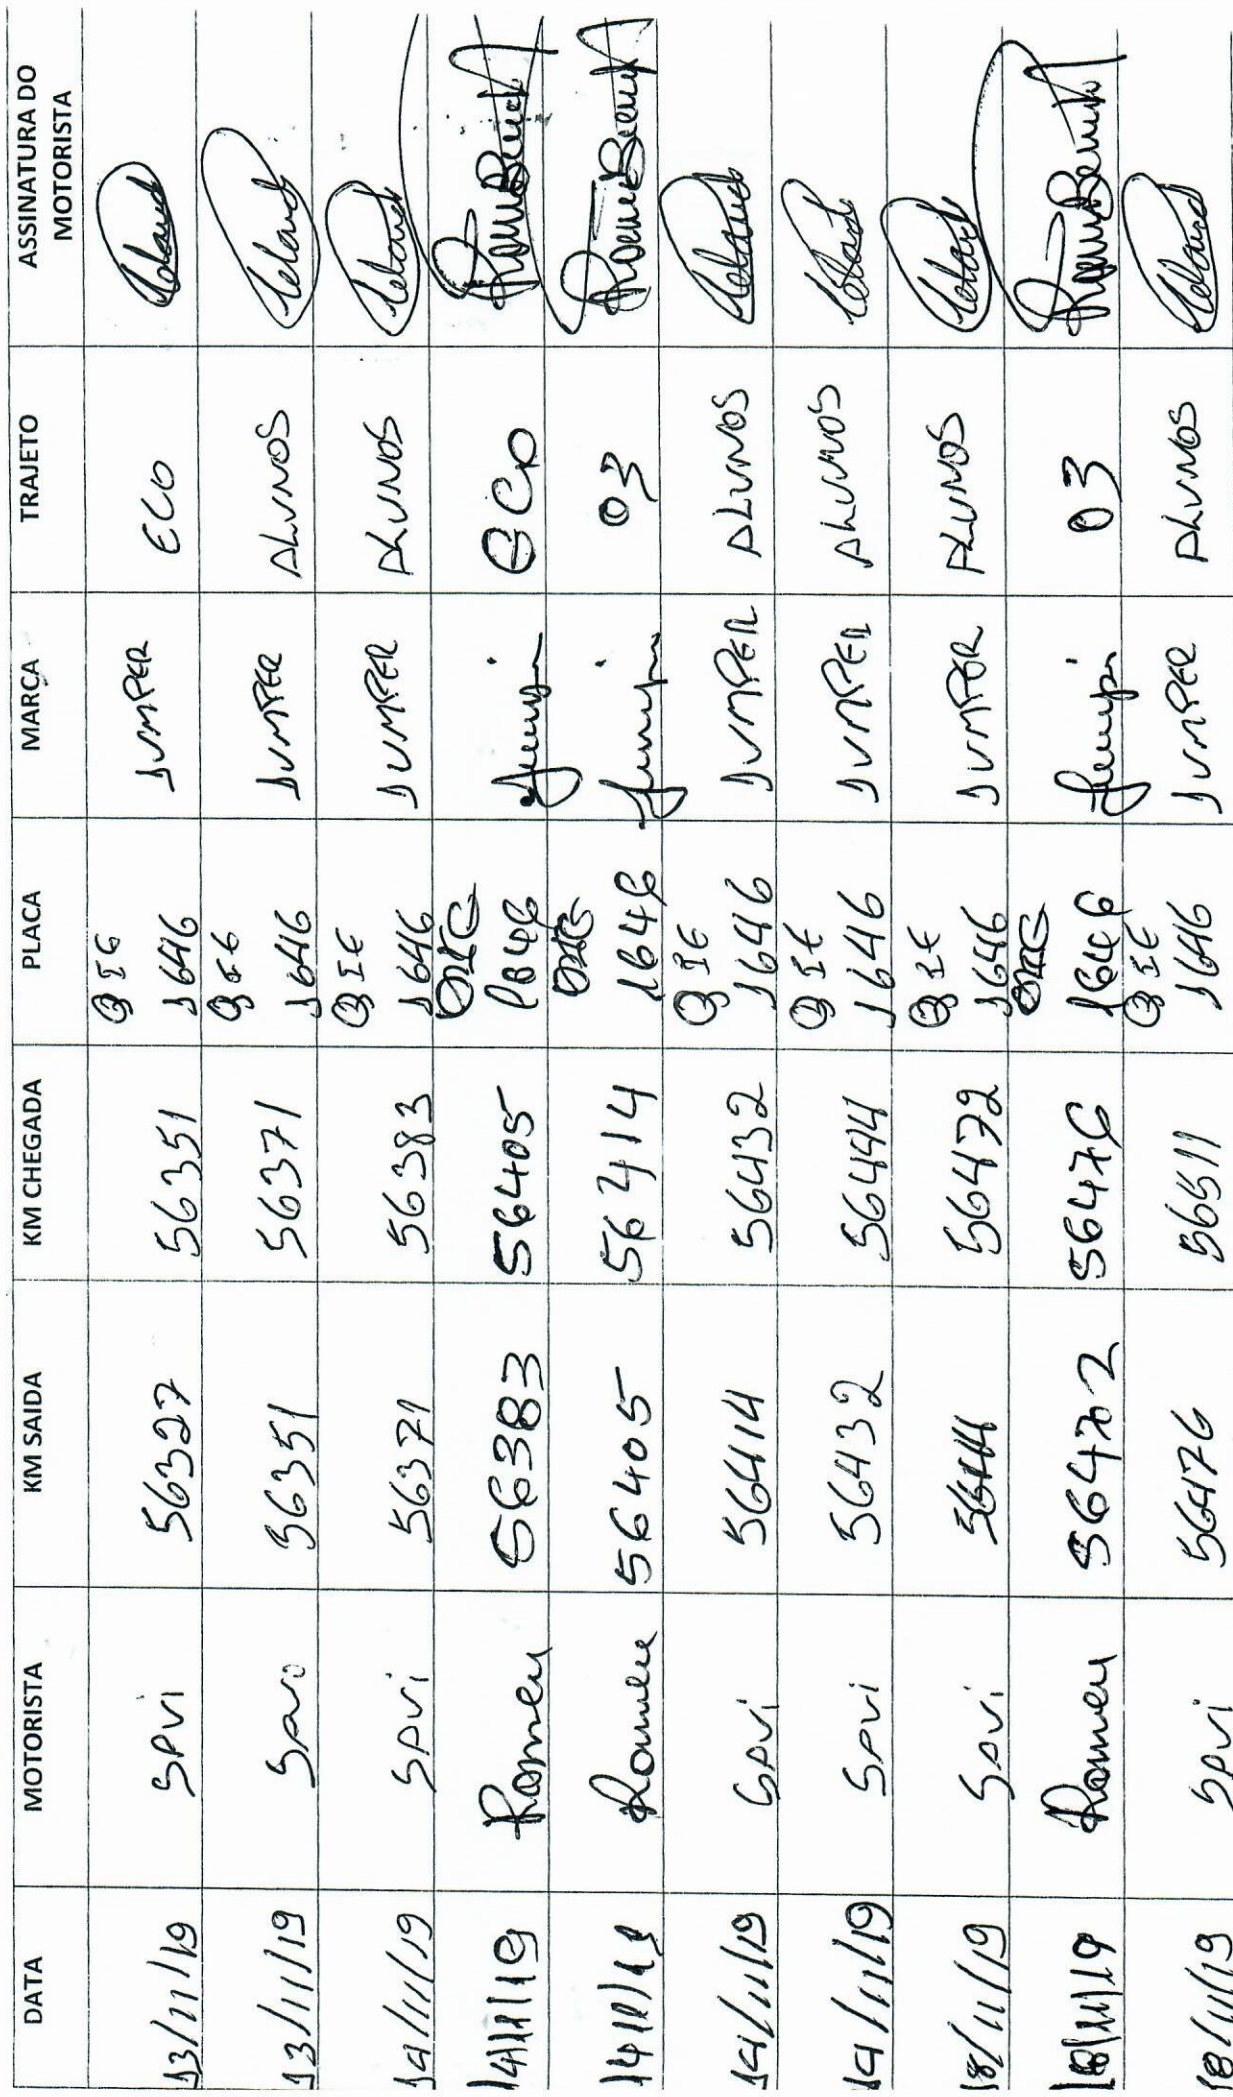 DATA MOTORISTA KM SAIDA KM CHEGADA PLACA MARCA TRAJETO ASSINATURA DO MOTORISTA
13/11/19 SAVI 56327 56351 QIG 1646 JUMPER ECO
13/11/19 SAVI 56351 56371 QIG 1646 JUMPER ALUNOS
14/11/19 SAVI 56371 56383 QIG 1646 JUMPER ALUNOS
14/11/19 Romeu 56383 56405 QIG 1646 Jumper ECO
14/11/19 Romeu 56405 56414 QIG 1646 Jumper 03
14/11/19 SAVI 56414 56432 QIG 1646 JUMPER ALUNOS
14/11/19 SAVI 56432 56444 QIG 1646 JUMPER ALUNOS
18/11/19 SAVI 56472 QIG 1646 JUMPER ALUNOS
18/11/19 Romeu 56476 QIG 1646 Jumper 03
18/11/19 SAVI 56476 56511 QIG 1646 JUMPER ALUNOS